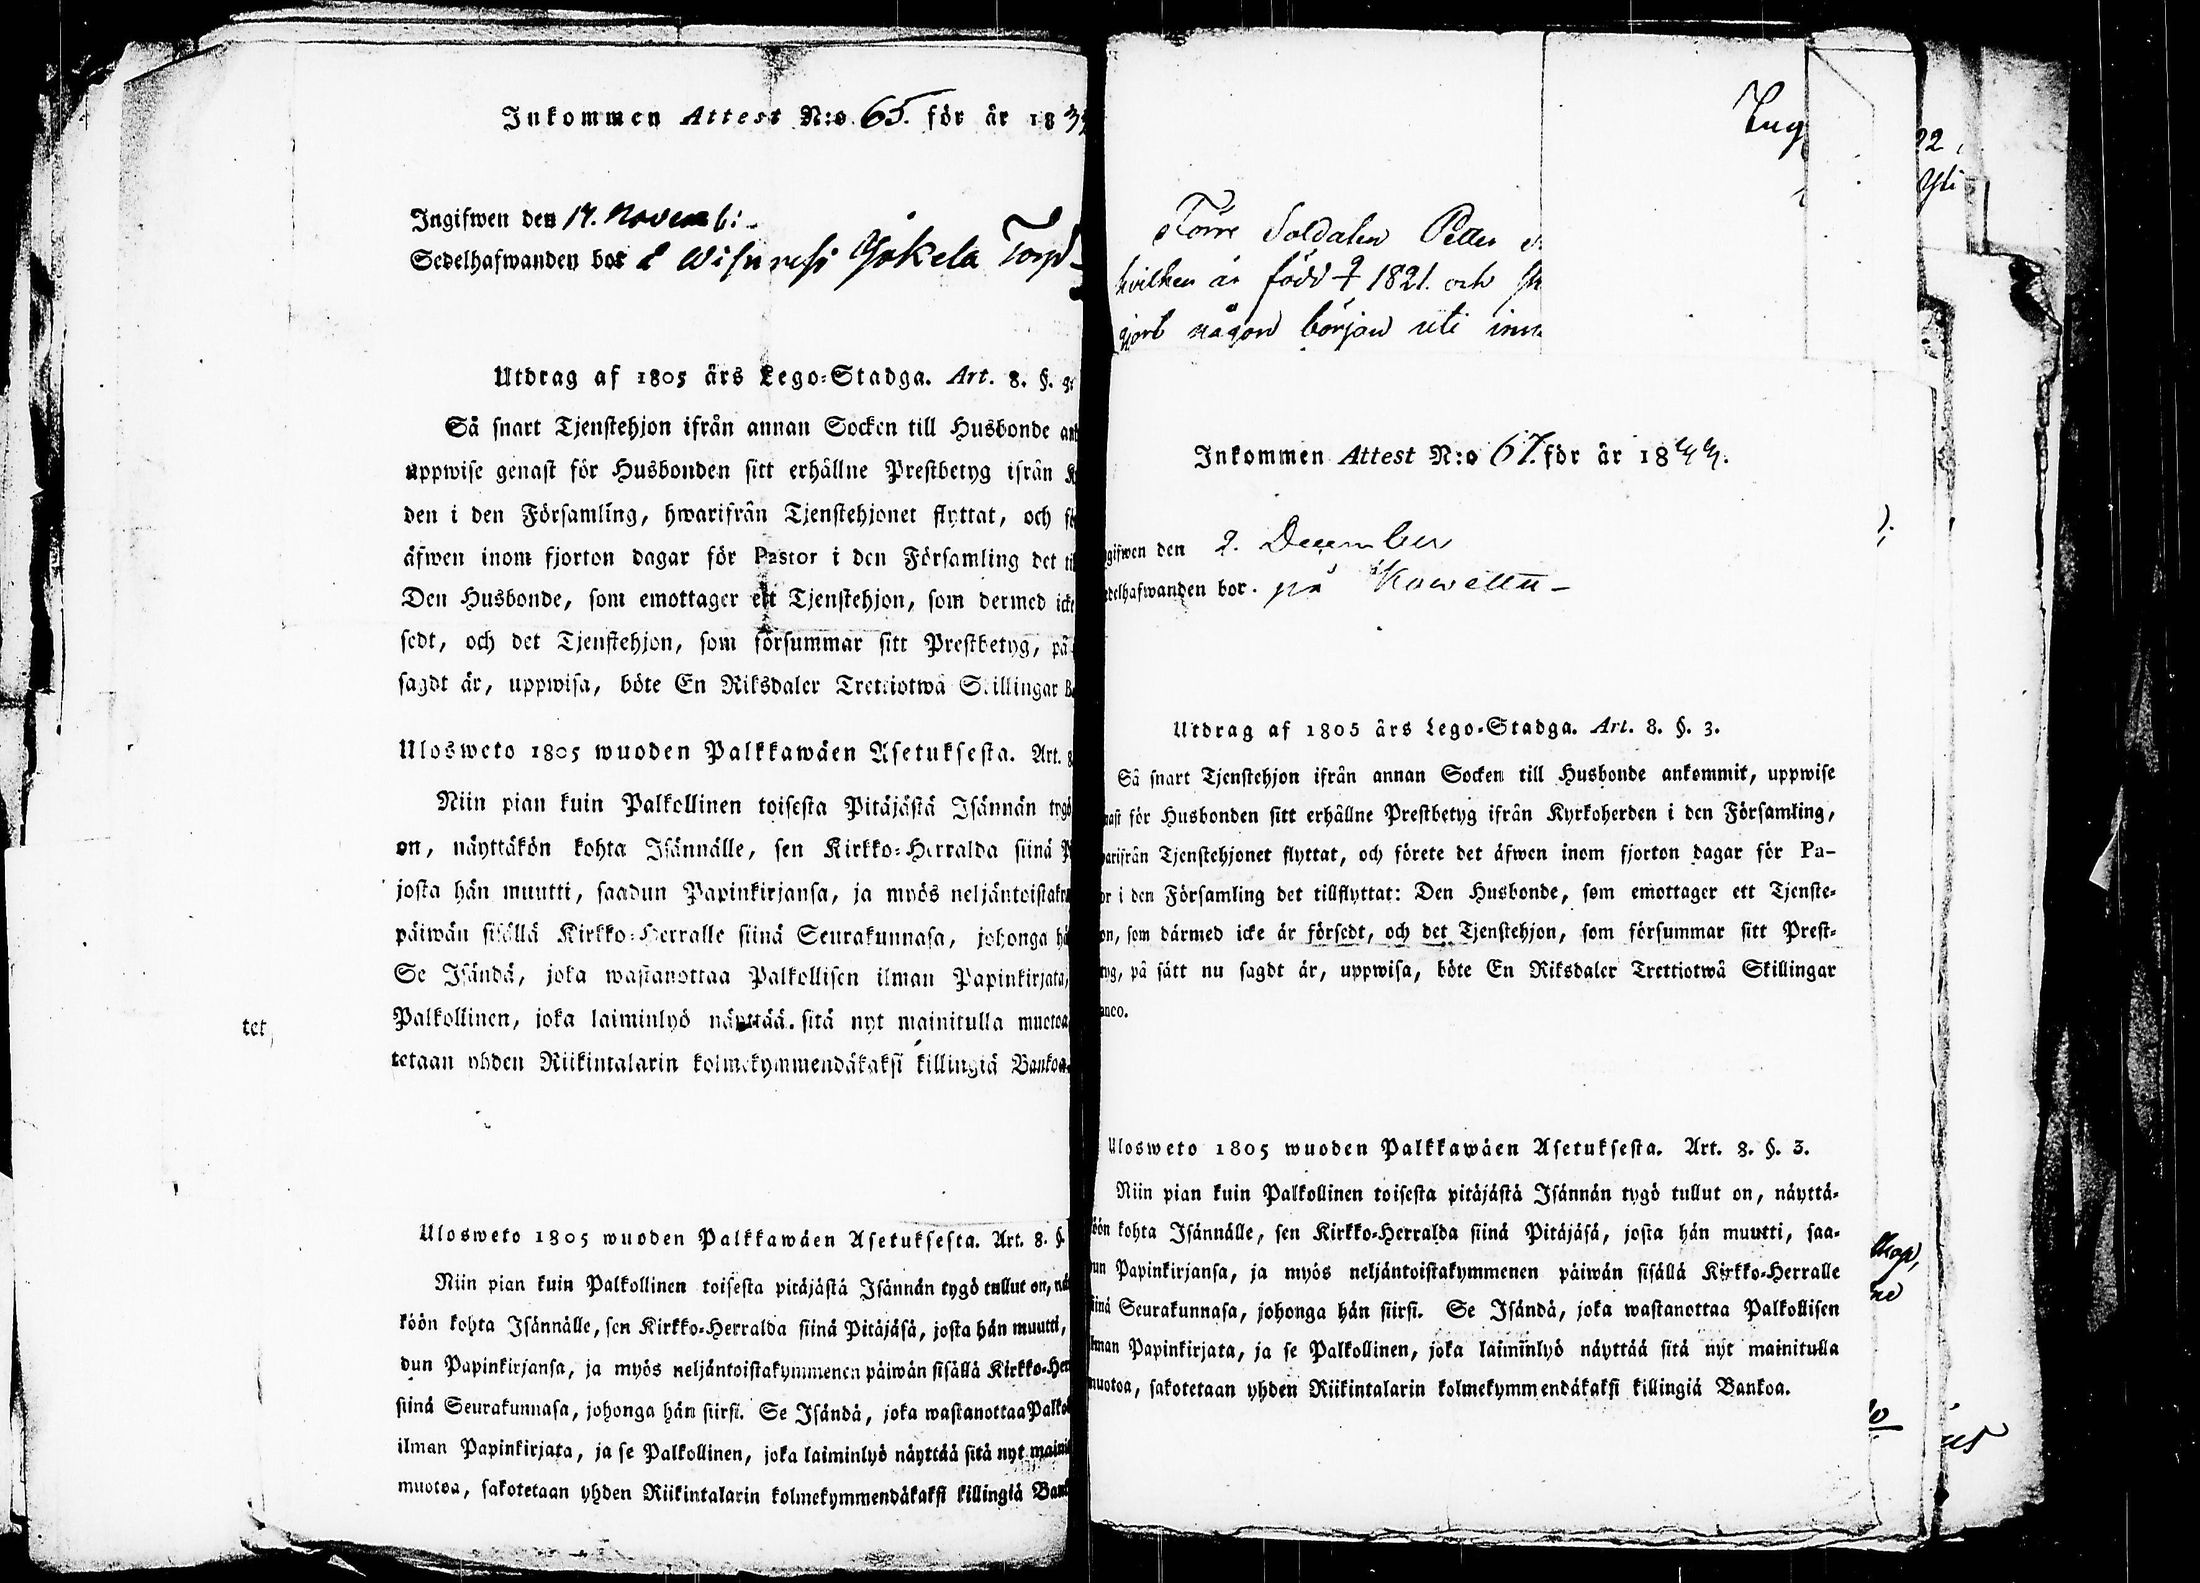 Inkommen Attest N:o 65. för år 183
Ingifwen den 17. Novemb:
Sedelhafwanden bor Jokela Torp
Utdrag af 1805 års Lego=Stadga. Art. 8. §. 3.
Så snart Tjenstehjon ifrån annan Socken till Husbonde an
uppwise genast för Husbonden sitt erhållne Prestbetyg ifrån K
den i den Församling, hwarifrån Tjenstehjonet flyttat, och fö
äfwen inom fjorton dagar för Pastor i den Församling det til
Den Husbonde, som emottager ett Tjenstehjon, som dermed icke
sedt, och det Tjenstehjon, som försummar sitt Prestbetyg, på
sagdt är, uppwisa, böte En Riksdaler Trettiotwå Skillingar B
Ulosweto 1805 wuoden Palkkawäen Asetuksesta. Art. 8
Niin pian kuin Palkollinen toisesta Pitäjästä Isännän tygö
on, näyttäkön kohta Isännälle, sen Kirkko=Herralda siinä P
josta hän muutti, saadun Papinkirjansa, ja myös neljäntoistaky
päiwän sisällä Kirkko=Herralle siinä Seurakunnasa, johonga hä
Se Isändä, joka wastanottaa Palkollisen ilman Papinkirjata,
Palkollinen, joka laiminlyö näyttää sitä nyt mainitulla muotoa
tetaan yhden Riikintalarin kolmekymmendäkaksi killingiä Bankoa.
tet,
Ulosweto 1805 wuoden Palkkawäen Asetuksesta. Art. 8. §.
Niin pian kuin Palkollinen toisesta pitäjästä Isännän tygö tullut on, nä
köön kohta Isännälle, sen Kirkko=Herralda siinä Pitäjäsä, josta hän muutti,
dun Papinkirjansa, ja myös neljäntoistakymmenen päiwän sisällä Kirkko=Her
siinä Seurakunnasa, johonga hän siirsi. Se Isändä, joka wastanottaa Palkol
ilman Papinkirjata, ja se Palkollinen, joka laiminlyö näyttää sitä nyt mainit
muotoa, sakotetaan yhden Riikintalarin kolmekymmendäkaksi killingiä Bank
Förre Soldaten Petter
hvilken är född 1821. och
gjort någon början uti inn
Inkommen Attest N:o 67. för år 18
gifwen den 2. December
delhafwanden bor. på
Utdrag af 1805 års Lego=Stadga. Art. 8. §. 3.
Så snart Tjenstehjon ifrån annan Socken till Husbonde ankommit, uppwise
nast för Husbonden sitt erhållne Prestbetyg ifrån Kyrkoherden i den Församling,
warifrån Tjenstehjonet flyttat, och förete det äfwen inom fjorton dagar för Pa-
or i den Församling det tillflyttat: Den Husbonde, som emottager ett Tjenste=
on, som därmed icke är försedt, och det Tjenstehjon, som försummar sitt Prest=
tyg, på sätt nu sagdt är, uppwisa, böte En Riksdaler Trettiotwå Skillingar
anco.
Ulosweto 1805 wuoden Palkkawäen Asetuksesta. Art. 8. §. 3.
Niin pian kuin Palkollinen toisesta pitäjästä Isännän tygö tullut on, näyttä=
köön kohta Isännälle, sen Kirkko=Herralda siinä Pitäjäsä, josta hän muutti, saa=
un Papinkirjansa, ja myös neljäntoistakymmenen päiwän sisällä Kirkko=Herralle
iinä Seurakunnasa, johonga hän siirsi. Se Isändä, joka wastanottaa Palkollisen
lman Papinkirjata, ja se Palkollinen, joka laiminlyö näyttää sitä nyt mainitulla
muotoa, sakotetaan yhden Riikintalarin kolmekymmendäkaksi killingiä Bankoa.